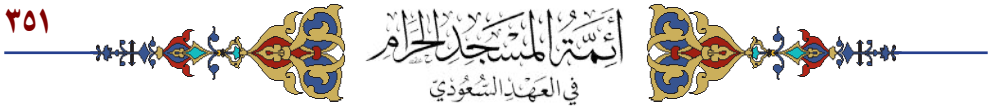 ٣٥١
أَئِمَّةُ المَسْجِدِ الحَرَامِ
في العَهْدِ السُّعُودِيّ